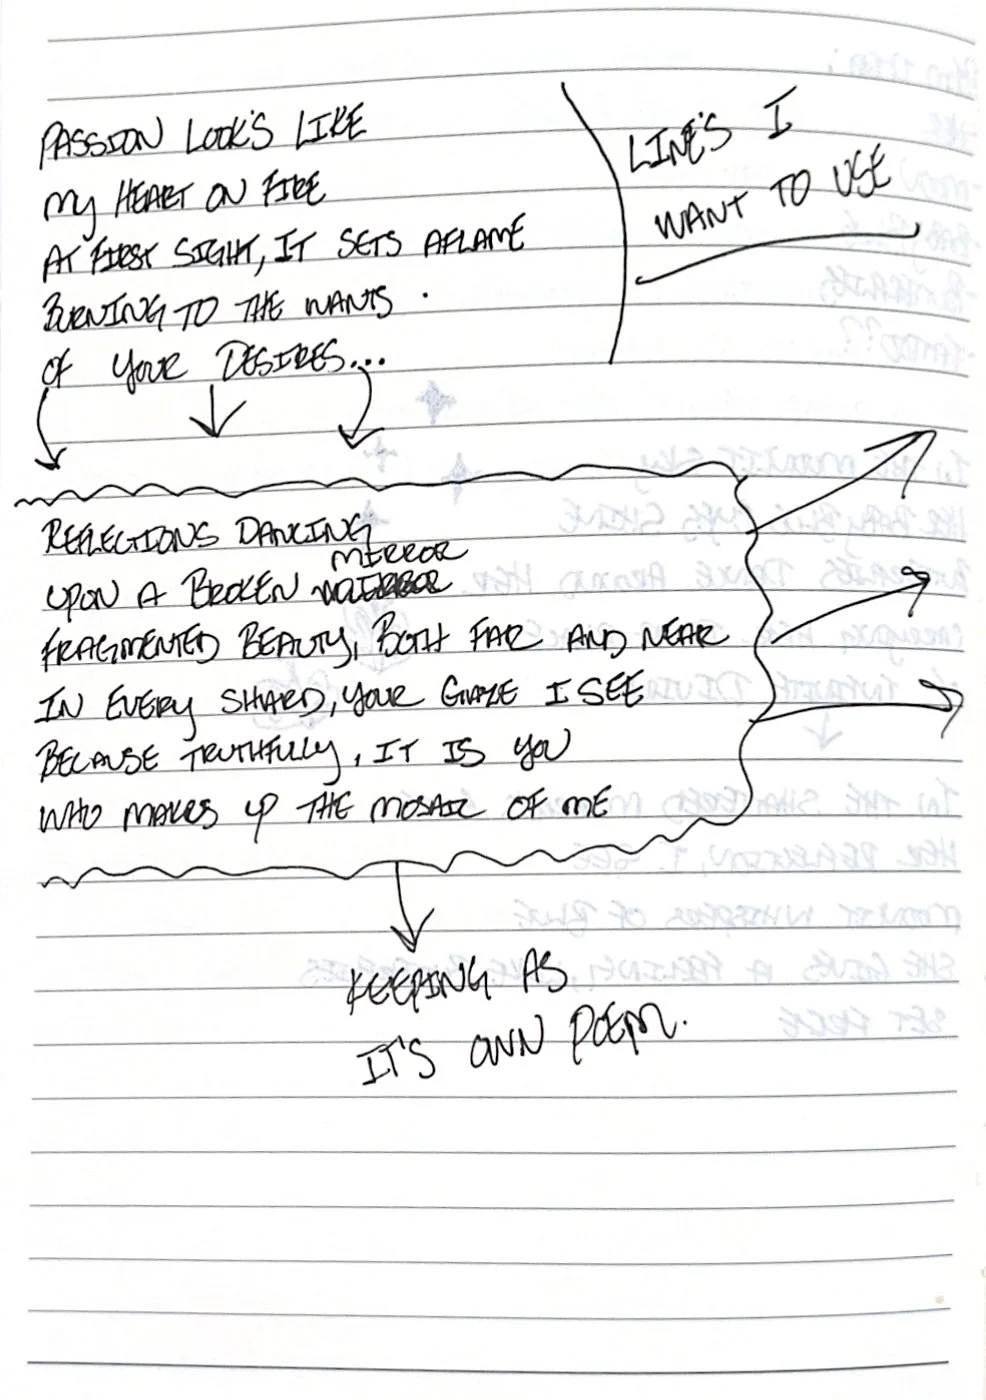 PASSION LOOK'S LIKE
MY HEART ON FIRE
AT FIRST SIGHT, IT SETS AFLAME
BURNING TO THE WANTS .
OF YOUR DESIRES...
LINE'S I
WANT TO USE
REFLECTIONS DANCING
MIRROR
UPON A BROKEN
FRAGMENTED BEAUTY, BOTH FAR AND NEAR
IN EVERY SHARD, YOUR GAZE I SEE
BECAUSE TRUTHFULLY, IT IS YOU
WHO MAKES UP THE MOSAIC OF ME
KEEPING AS
IT'S OWN POEM.